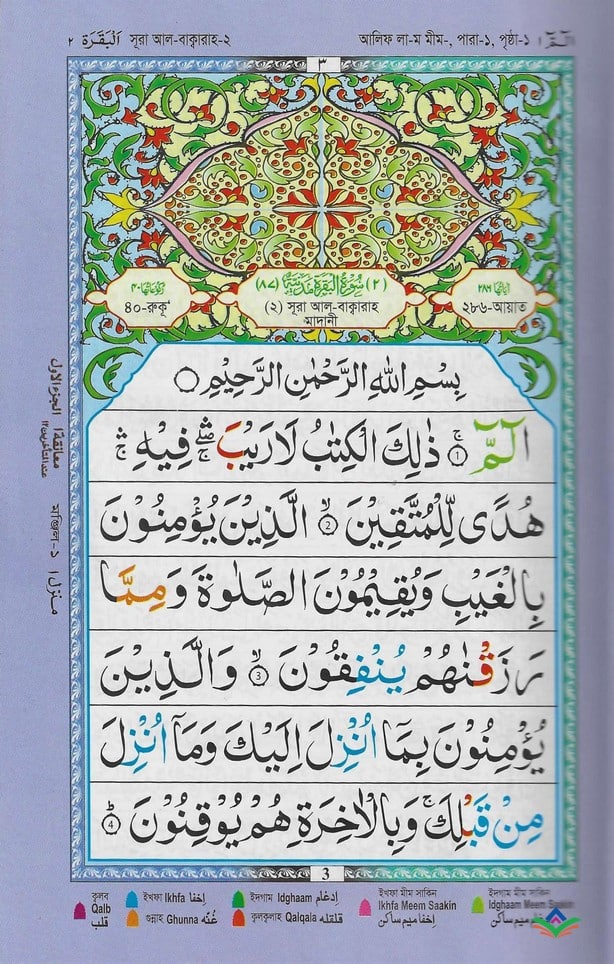 ٢ اَلْبَقَرَة সূরা আল-বাক্বারাহ-২
আলিফ লা-ম মীম-, পারা-১, পৃষ্ঠা-১ الٓمّٓ ١
٣
رُكُوْعَاتُهَا ٤٠
৪০-রুকূ'
(٢) سُوْرَةُ الْبَقَرَةِ مَدَنِيَّةٌ (٨٧)
(২) সূরা আল-বাক্বারাহ
মাদানী
اٰيَاتُهَا ٢٨٦
২৮৬-আয়াত
بِسْمِ اللهِ الرَّحْمٰنِ الرَّحِيْمِ ○
الٓمّٓ ۚ 1 ذٰلِكَ الْكِتٰبُ لَا رَيْبَ ۛۖ فِيْهِ ۛۚ
هُدًى لِّلْمُتَّقِيْنَ ۙ 2 الَّذِيْنَ يُؤْمِنُوْنَ
بِالْغَيْبِ وَيُقِيْمُوْنَ الصَّلٰوةَ وَمِمَّا
رَزَقْنٰهُمْ يُنْفِقُوْنَ ۙ 3 وَالَّذِيْنَ
يُؤْمِنُوْنَ بِمَآ اُنْزِلَ اِلَيْكَ وَمَآ اُنْزِلَ
مِنْ قَبْلِكَ ۚ وَبِالْاٰخِرَةِ هُمْ يُوْقِنُوْنَ ؕ 4
معانقة ١ الجزء الاول
عند المتأخرين ١٢
মানজিল-১ منزل ١
3
ক্বলব
Qalb
قلب
ইখফা Ikhfa اِخفا
গুন্নাহ Ghunna غُنَّه
ইদগাম Idghaam اِدغَام
ক্বলক্বলাহ Qalqala قلقله
ইখফা মীম সাকিন
Ikhfa Meem Saakin
اِخفا ميم ساكن
ইদগাম মীম সাকিন
Idghaam Meem Saakin
ميم ساكن